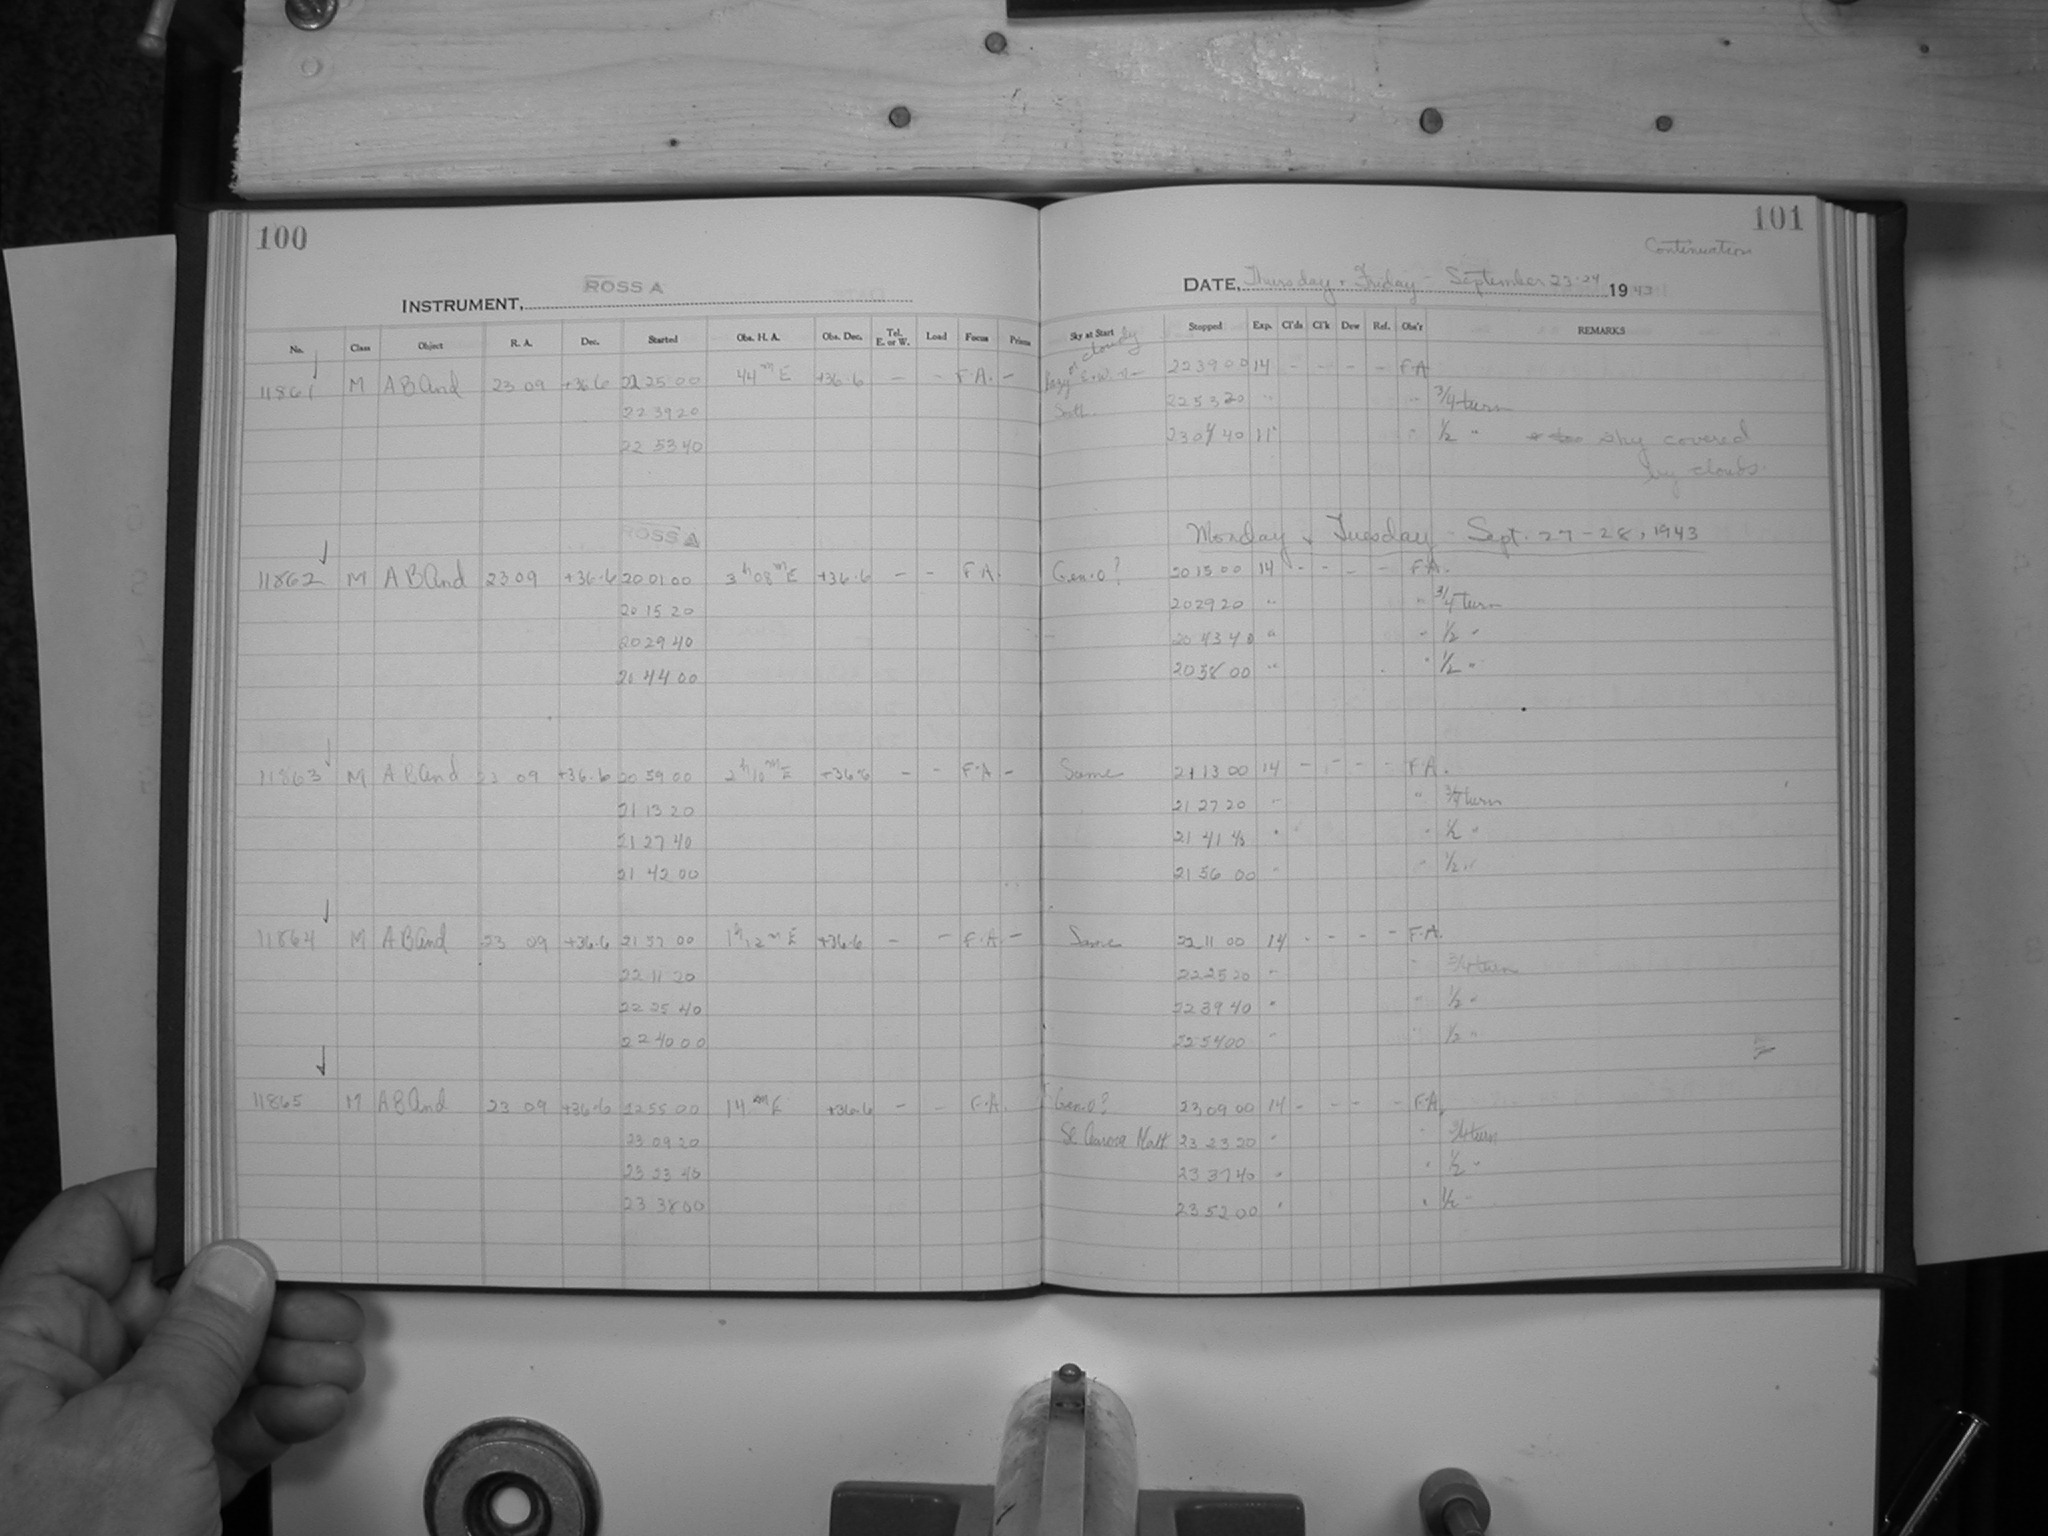 100
INSTRUMENT, ROSS A
No. Class Object R. A. Dec. Started Obs. H. A. Obs. Dec. Tel. E. or W. Load Focus Prisms
11861 M AB And 23 09 +36.6 22 25 00 44 m E +36.6 — - F.A. —
22 39 20
22 53 40
ROSS A
11862 M AB And 23 09 +36.6 20 01 00 3 h 08 m E +36.6 — - F.A.
20 15 20
20 29 40
20 44 00
11863 M AB And 23 09 +36.6 20 59 00 2 h 10 m E +36.6 — - F.A —
21 13 20
21 27 40
21 42 00
11864 M AB And 23 09 +36.6 21 57 00 1 h 12 m E +36.6 — - F.A. —
22 11 20
22 25 40
22 40 00
11865 M AB And 23 09 +36.6 22 55 00 14 m E +36.6 — - F.A.
23 09 20
23 23 40
23 38 00
101
Continuation
DATE, Thursday & Friday - September 23-24 1943
Sky at Start Stopped Exp. Cl'ds Cl'k Dew Ref. Obs'r REMARKS
cloudy
Hazy E. & W. & 22 39 00 14 - - - - F.A
South 22 53 20 " " 3/4 turn
23 04 40 11 " 1/2 " sky covered
by clouds.
Monday & Tuesday - Sept. 27-28, 1943
Gen. 0? 20 15 00 14 - - - - F.A.
20 29 20 " " 3/4 turn
20 43 40 " " 1/2 "
20 58 00 " " 1/2 "
Same 21 13 00 14 - - - - F.A.
21 27 20 " " 3/4 turn
21 41 40 " " 1/2 "
21 56 00 " " 1/2 "
Same 22 11 00 14 - - - - F.A.
22 25 20 " " 3/4 turn
22 39 40 " " 1/2 "
22 54 00 " " 1/2 "
Gen. 0? 23 09 00 14 - - - - F.A.
Sl. Aurora North 23 23 20 " " 3/4 turn
23 37 40 " " 1/2 "
23 52 00 " " 1/2 "